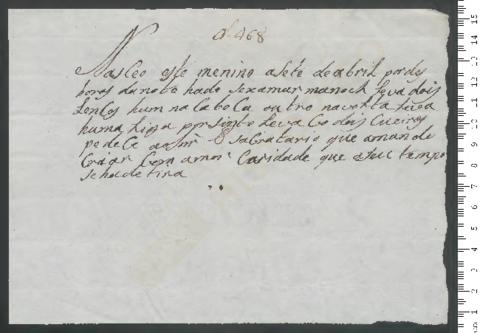 468
Nasceo este menino a sete de abril pordes
horas da noto hade se xamar manoel leva dois
lensos hum na cabeca outro na sinta leva
huma liga por sinto leva Co dois Cueiros
pede Ce ao Snr Sacratario que a mande
Criar Com amor Caridade que a seu tempo
se ha de tira